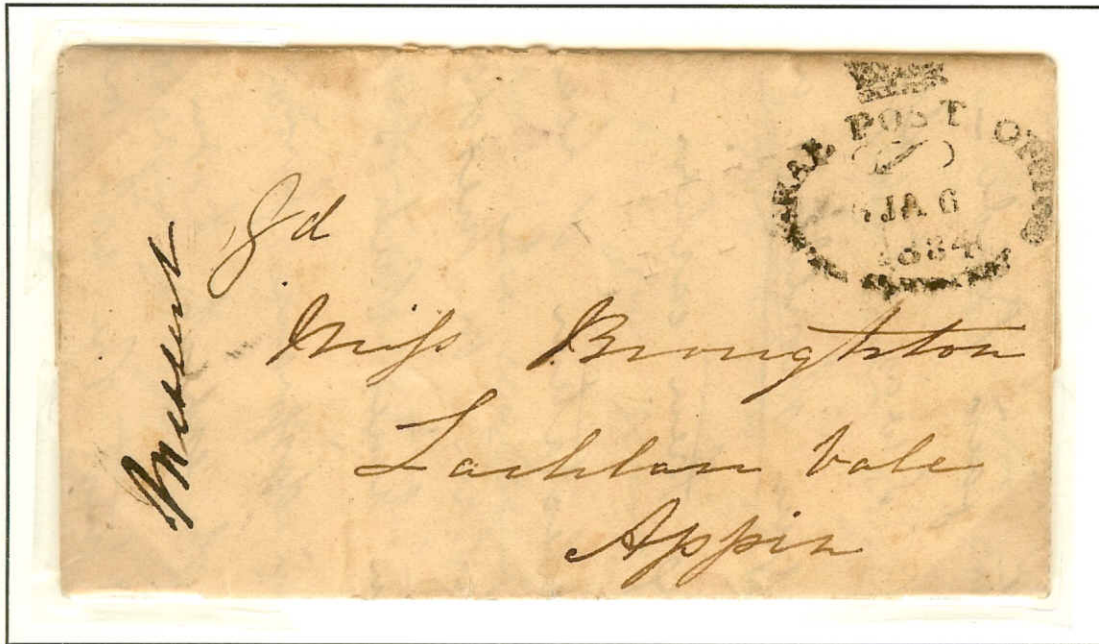 GENERAL POST OFFICE
JA 6
1834
Missent
8d
Miss Broughton
Lachlan Vale
Appin